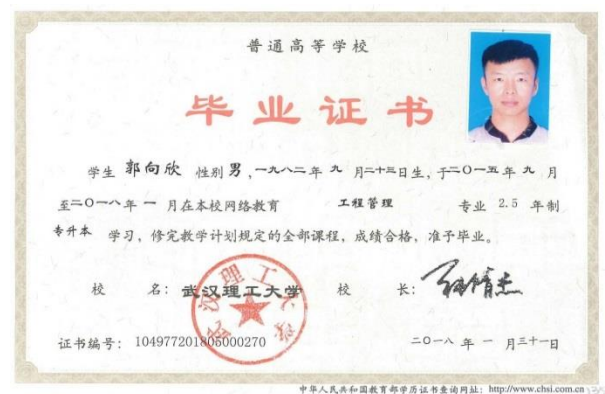 普通高等学校
毕业证书
学生 郭向欣 性别 男 ,一九八二年 九 月二十三日生，于二〇一五年 九 月
至二〇一八年 一 月在本校网络教育 工程管理 专业 2.5 年制
专升本 学习，修完教学计划规定的全部课程，成绩合格，准予毕业。
校 名：武汉理工大学 校 长：
武汉理工大学
证书编号： 104977201805000270 二〇一八 年 一 月三十一日
中华人民共和国教育部学历证书查询网址：http://www.chsi.com.cn